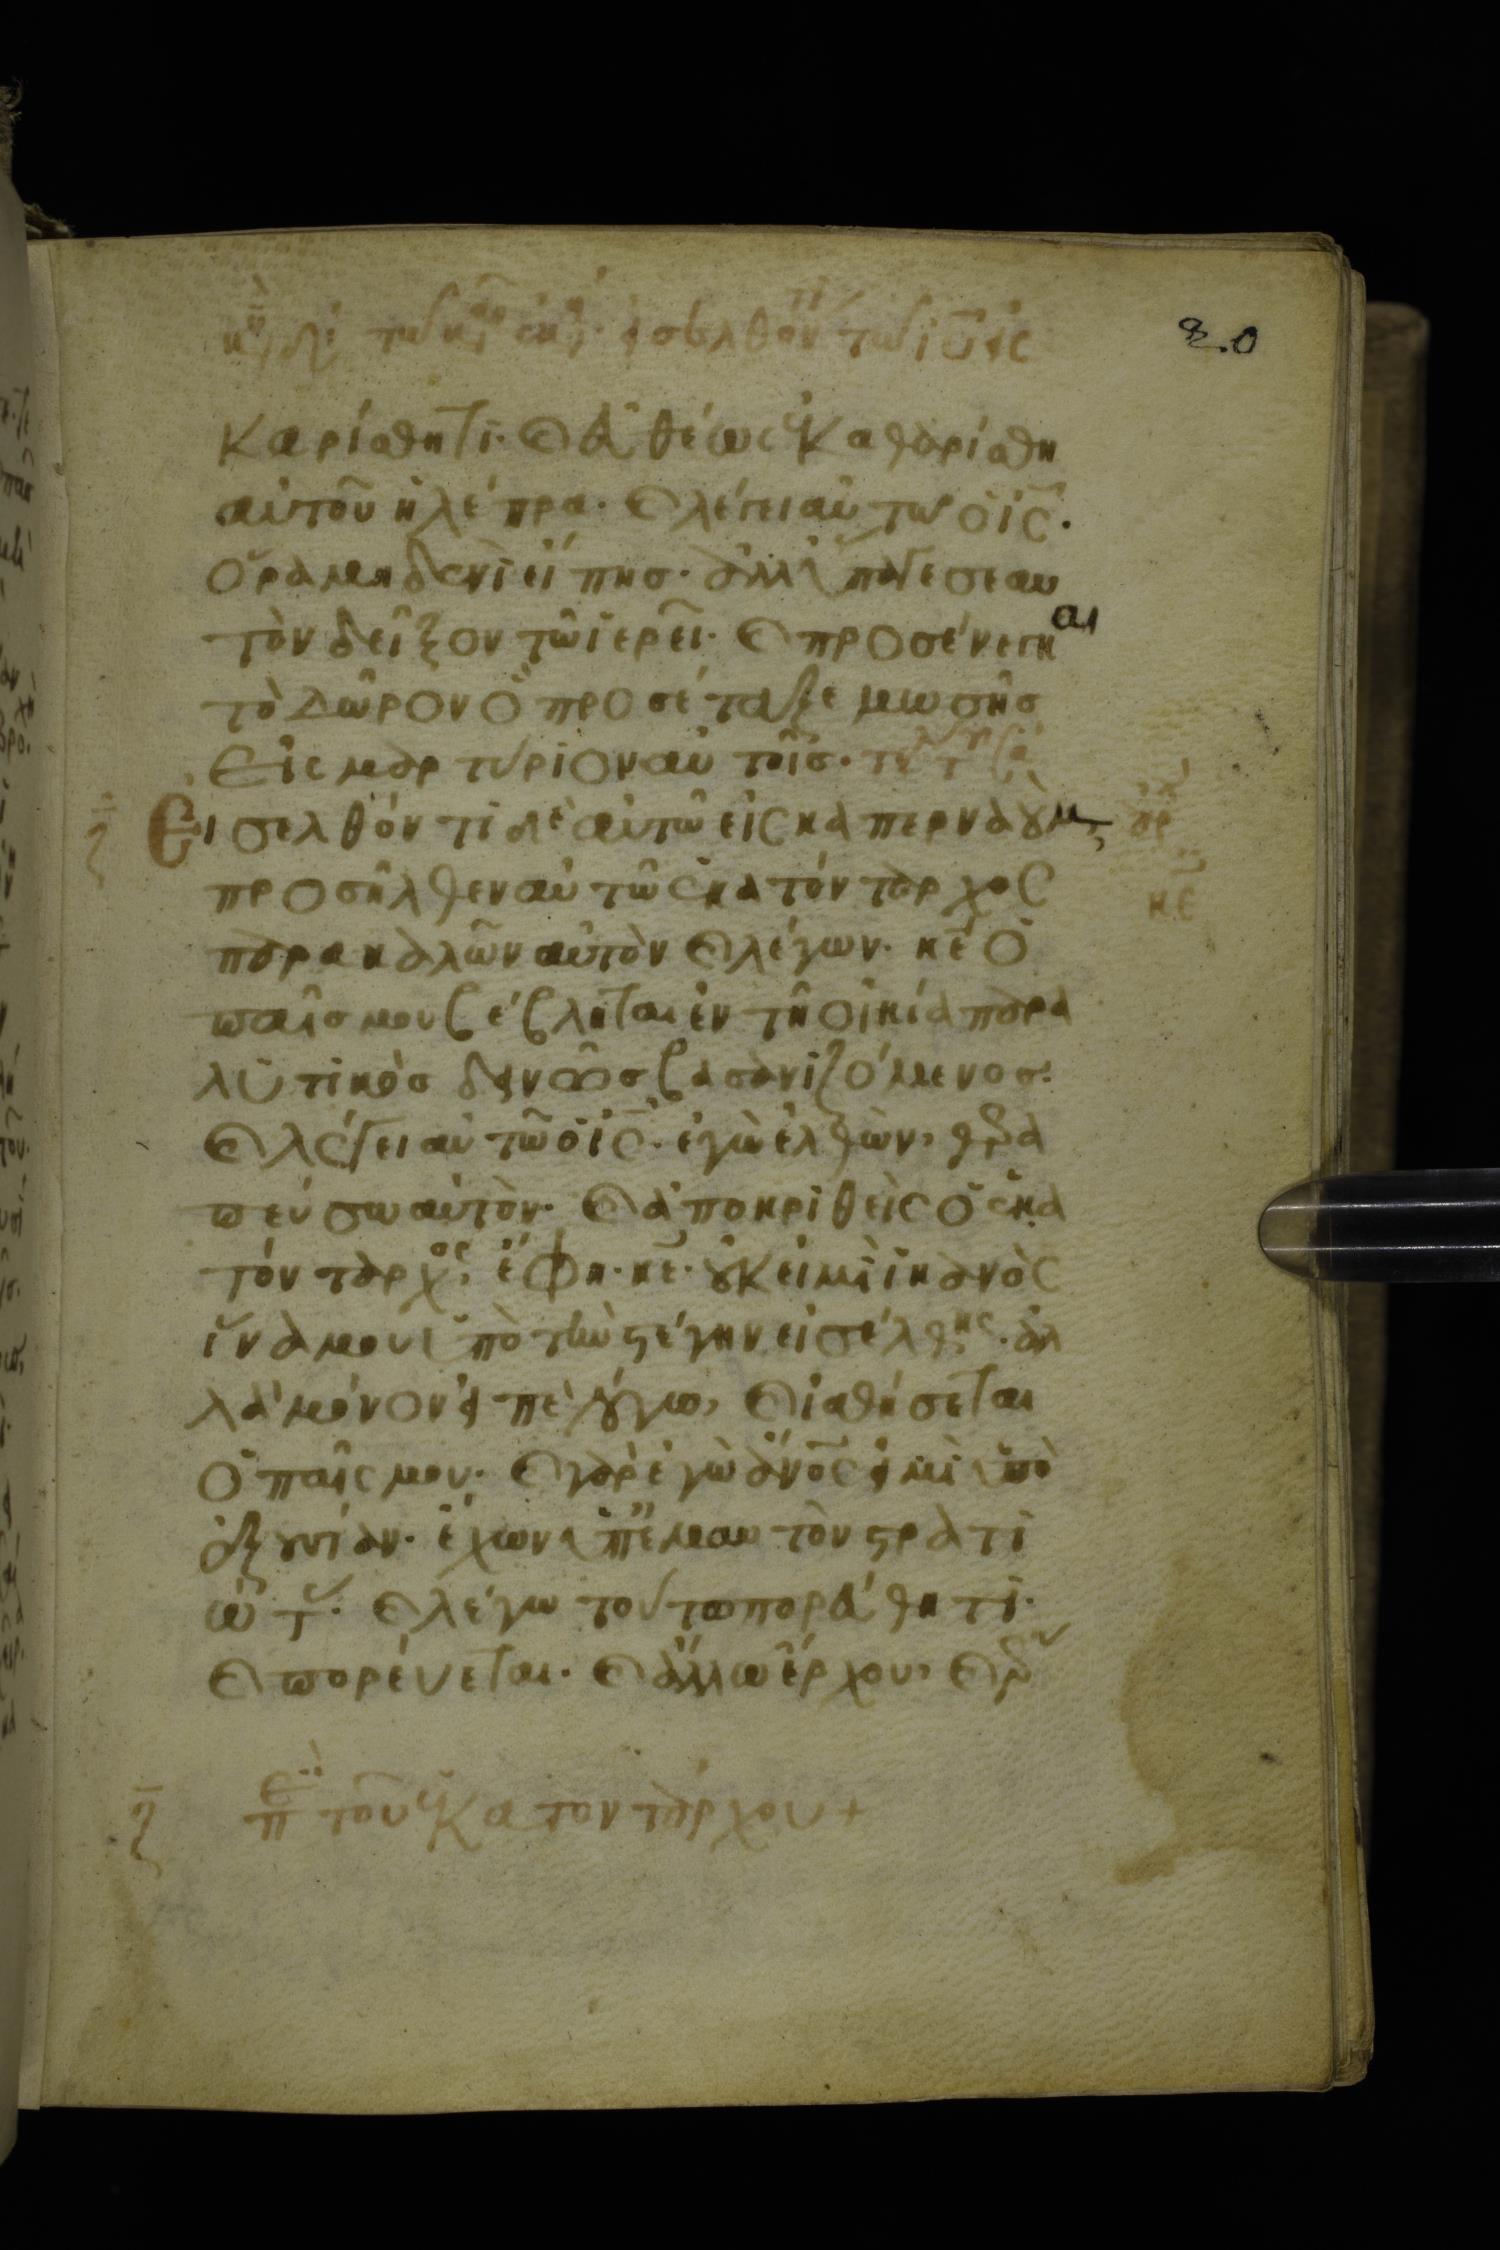 20
καρίσθητι· καὶ εὐθέως ἐκαθαρίσθη
αὐτοῦ ἡ λέπρα· καὶ λέγει αὐτῶ ὁ ἰς̅·
Ὅρα μηδενὶ εἴπησ· ἀλλ' ὕπαγε σεαυ
τὸν δεῖξον τῶ ἱερεῖ· καὶ προσένεγκαι
τὸ δῶρον ὃ προσέταξε μωσῆσ
Εἰς μαρτύριον αὐτοῖσ·
Εἰσελθόντι δὲ αὐτῶ εἰς καπερναούμ,
προσῆλθεν αὐτῶ ἑκατόνταρχος
παρακαλῶν αὐτὸν καὶ λέγων· κε̅ ὁ
παῖσ μου βέβληται ἐν τῆ οἰκία παρα
λυτικὸσ δεινῶσ βασανιζόμενοσ:
καὶ λέγει αὐτῶ ὁ ἰς̅· ἐγὼ ἐλθὼν, θερα
πεύσω αὐτὸν· καὶ ἀποκριθεὶς ὁ ἑκα
τόνταρχος, ἔφη· κε̅· οὐκ εἰμὶ ἱκανὸς
ἵνα μου ὑπὸ τὴν στέγην εἰσέλθης· ἀλ
λὰ μόνον εἰπὲ λόγω, καὶ ἰαθήσεται
ὁ παῖς μου· καὶ γὰρ ἐγὼ ἄνο̅ς εἰμὶ ὑπὸ
ἐξουσίαν· ἔχων ὑπ' ἐμαυτὸν στρατι
ώτου· καὶ λέγω τούτω πορεύθητι·
καὶ πορεύεται· καὶ ἄλλω ἔρχου, καὶ ἔρ
ζ̅ περὶ τοῦ ἑκατοντάρχου +